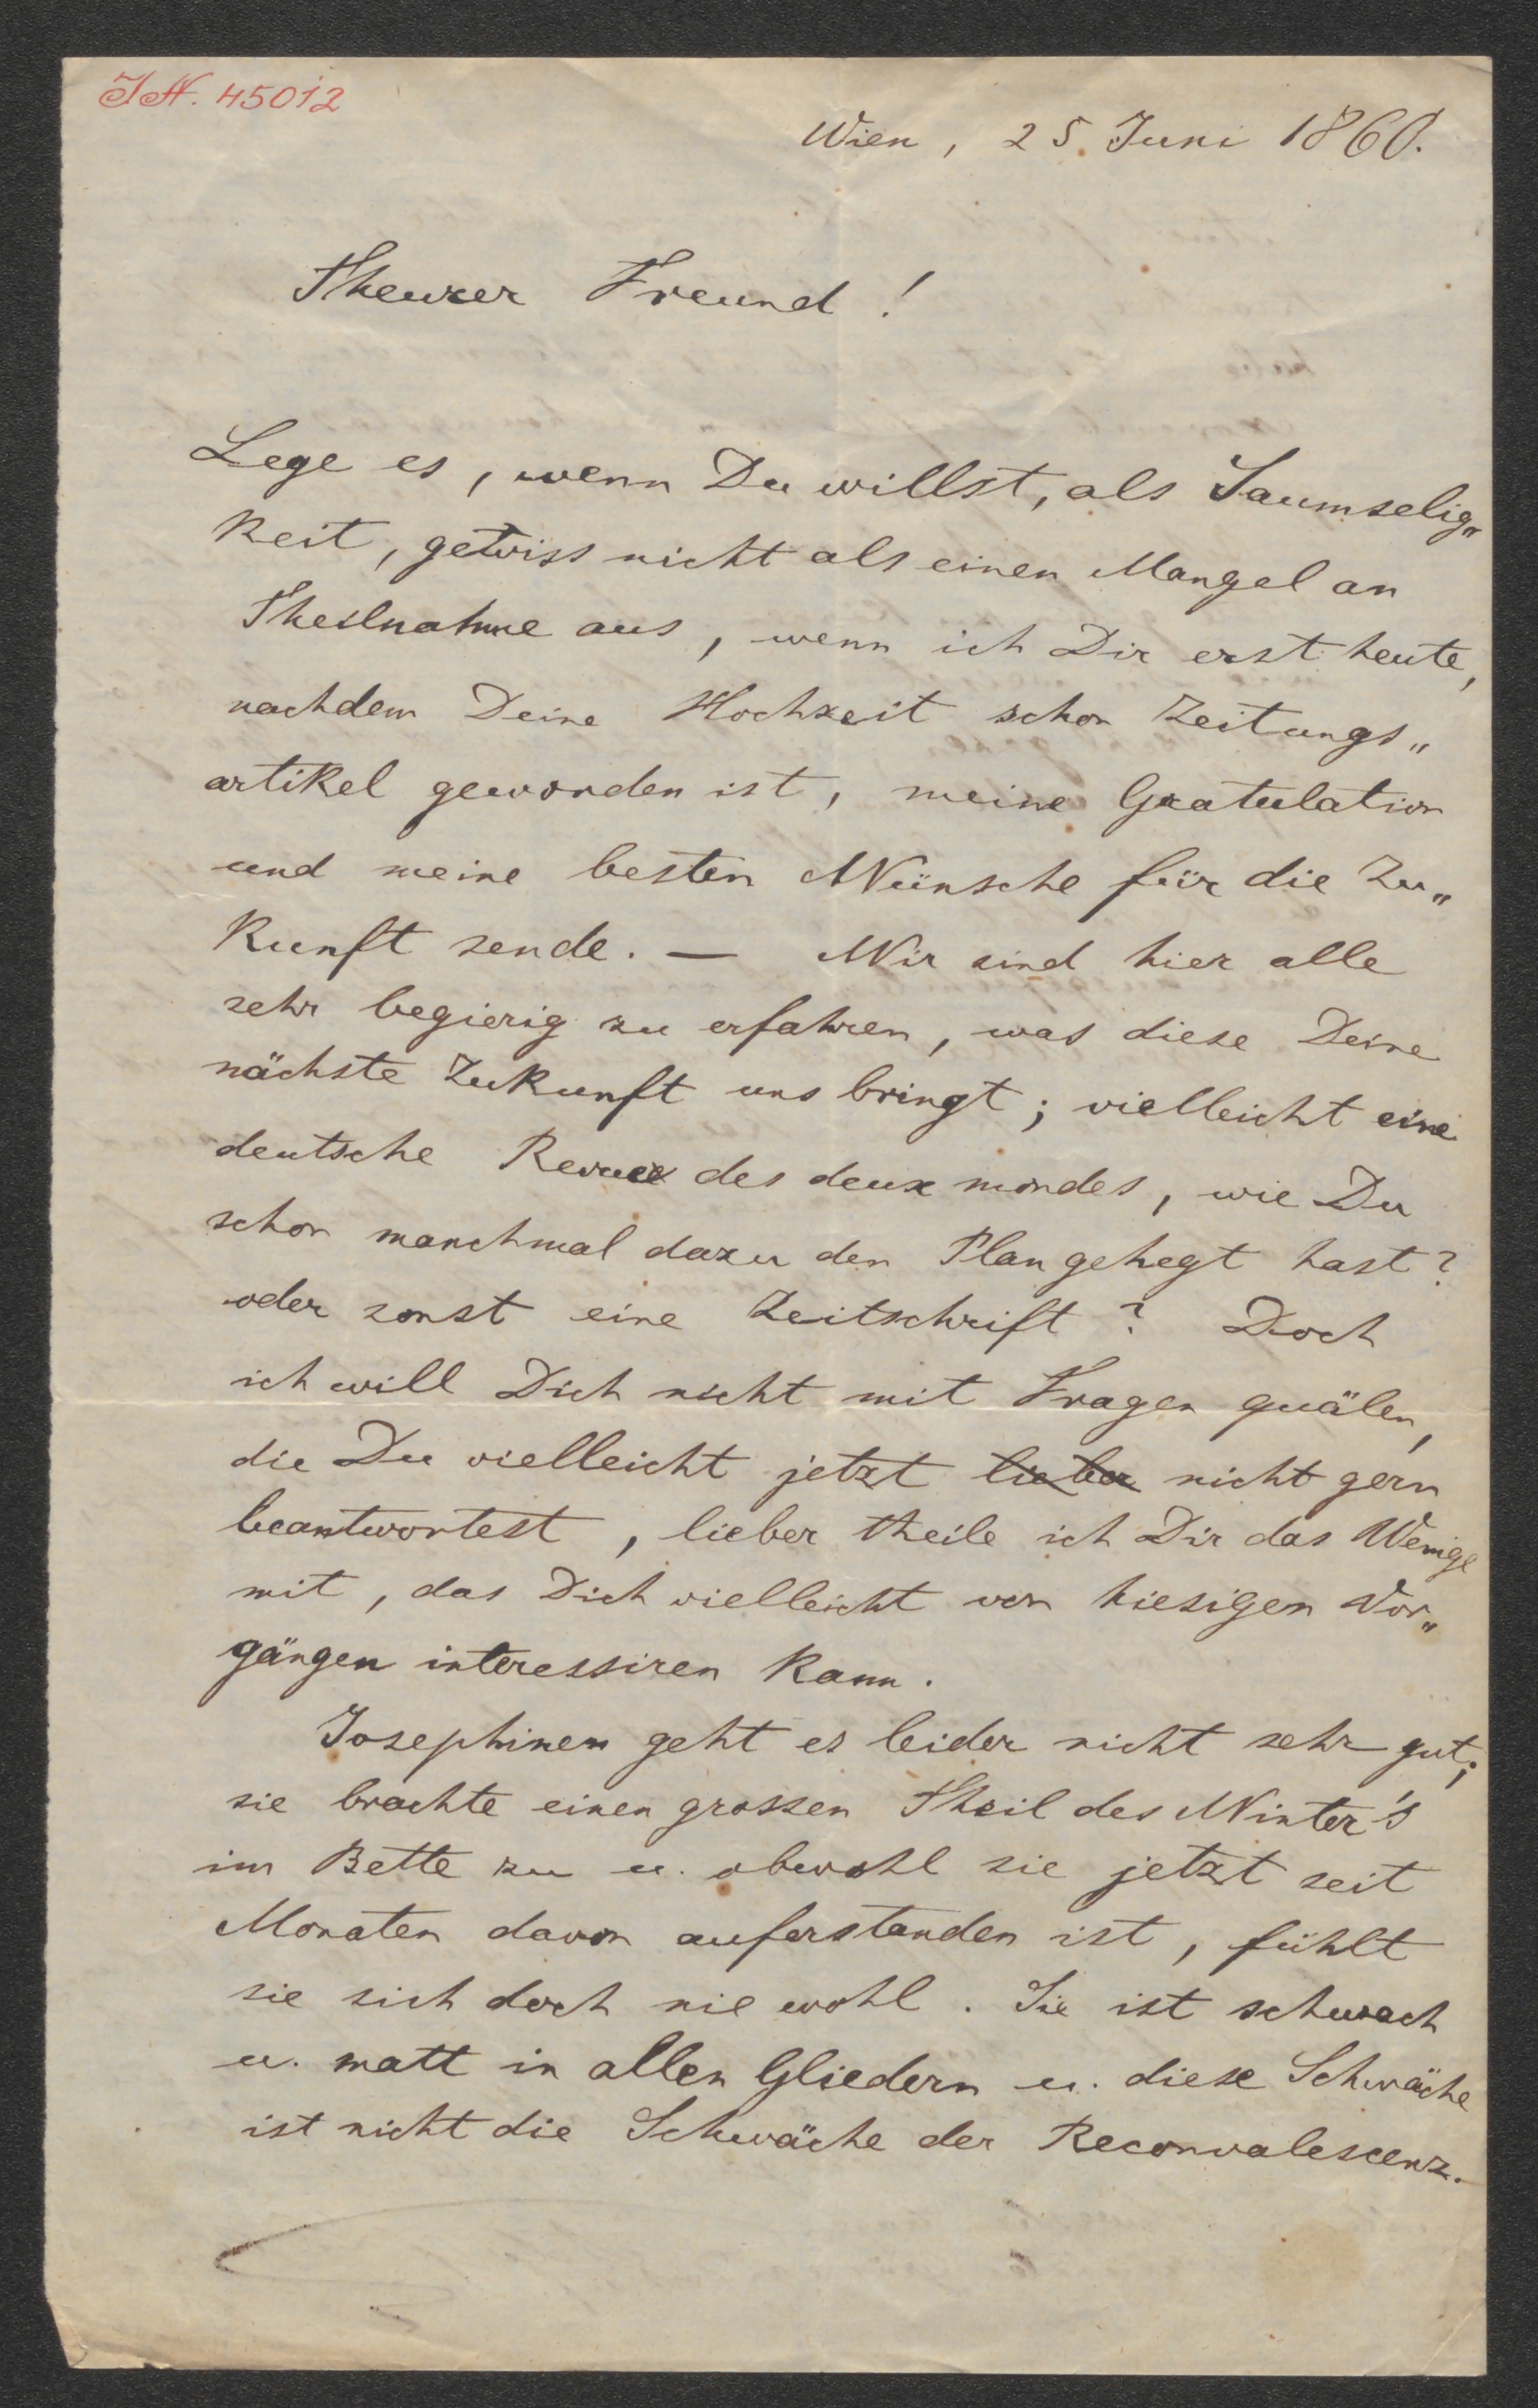 IN. 45012
Wien, 25. Juni 1860.
Theurer Freund!
Lege es, wenn Du willst, als Saumselig„
keit, gewiss nicht als einen Mangel an
Theilnahme aus, wenn ich Dir erst heute,
nachdem Deine Hochzeit schon Zeitungs„
artikel geworden ist, meine Gratulation
und meine besten Wünsche für die Zu„
kunft sende. — Wir sind hier alle
sehr begierig zu erfahren, was diese Deine
nächste Zukunft uns bringt; vielleicht eine
deutsche Revue des deux mondes, wie Du
schon manchmal dazu den Plan gehegt hast?
oder sonst eine Zeitschrift? Doch
ich will Dich nicht mit Fragen quälen,
die Du vielleicht jetzt lieber nicht gern
beantwortest, lieber theile ich Dir das Wenige
mit, das Dich vielleicht von hiesigen Vor„
gängen interessiren kann.
Josephinen geht es leider nicht sehr gut;
sie brachte einen grossen Theil des Winter's
im Bette zu u. obwohl sie jetzt seit
Monaten davon auferstanden ist, fühlt
sie sich doch nie wohl. Sie ist schwach
u. matt in allen Gliedern u. diese Schwäche
ist nicht die Schwäche der Reconvalescenz.